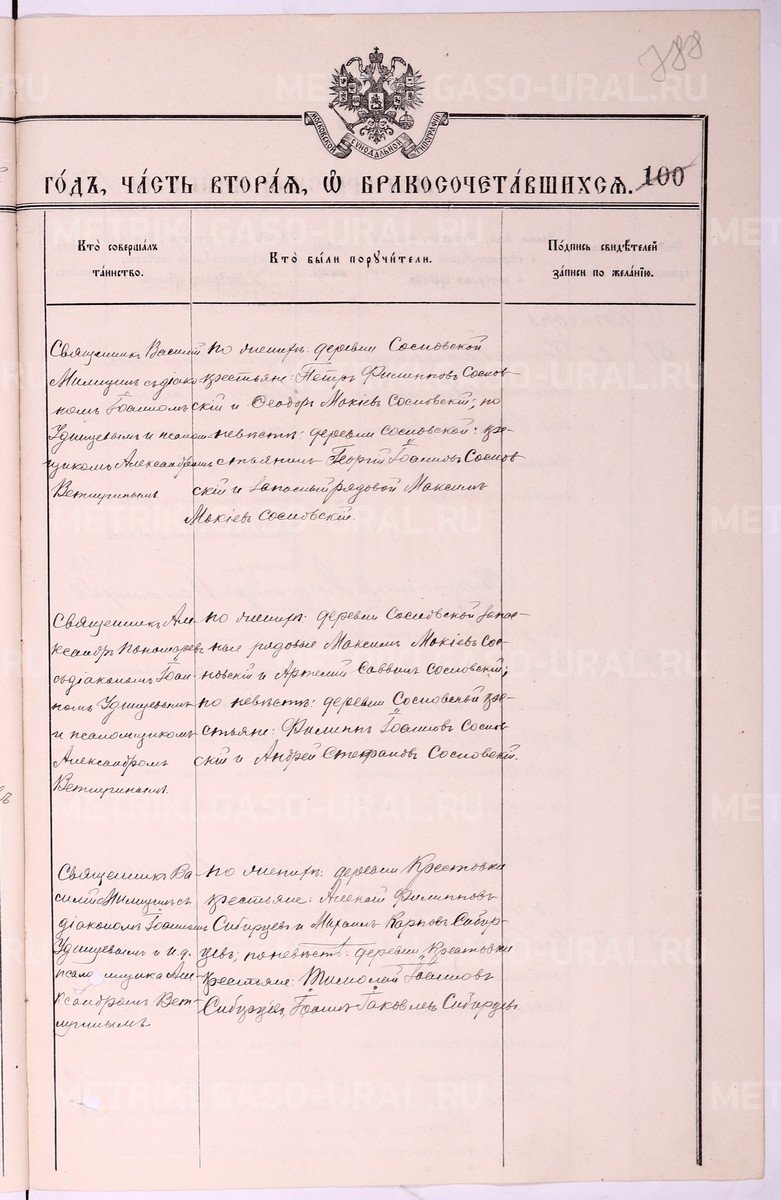 788
МОСКОВСКОЙ СѴНОДАЛЬНОЙ ТИПОГРАФІИ
ГО́ДЪ, ЧА́СТЬ ВТОРА́Я, Ѡ҆ БРАКОСОЧЕТА́ВШИХСЯ. 100
Кто̀ соверша́лъ
та́инство.
Кто̀ бы́ли порꙋчи́тели.
По́дпись свидѣ́телей
за́писи по жела́нїю.
Священникъ Василій
съ діако-
номъ Іоанномъ
Удинцевымъ и псалом-
щикомъ Александромъ
Ветлугинымъ
по женихѣ: деревни Сосновской
крестьяне: Петръ Филипповъ Соснов-
скій и Ѳеодоръ Мокіевъ Сосновскій; по
невѣстѣ: деревни Сосновской: кре-
стьянинъ Георгій Іоанновъ Соснов
скій и запасный рядовой Максимъ
Мокіевъ Сосновскій.
Священникъ Але-
ксандръ Пономаревъ
съ діакономъ Іоан-
номъ Удинцевымъ
и псаломщикомъ
Александромъ
Ветлугинымъ.
по женихѣ: деревни Сосновской запас-
ные рядовые Максимъ Мокіевъ Сос-
новскій и Артемій Саввинъ Сосновскій;
по невѣстѣ: деревни Сосновской кре-
стьяне: Филиппъ Іоанновъ Соснов-
скій и Андрей Стефановъ Сосновскій.
Священникъ Ва-
силій съ
діакономъ Іоанномъ
Удинцевымъ и и.д.
псаломщика Але-
ксандромъ Вет-
лугинымъ.
по женихѣ: деревни Крестовки
крестьяне: Алексій Филипповъ
Сибирцевъ и Михаилъ Карповъ Сибир-
цевъ; по невѣстѣ: деревни Крестовки
крестьяне: Тимоѳей Іоанновъ
Сибирцевъ, Іоаннъ Іаковлевъ Сибирцевъ.
METRIKI.GASO-URAL.RU